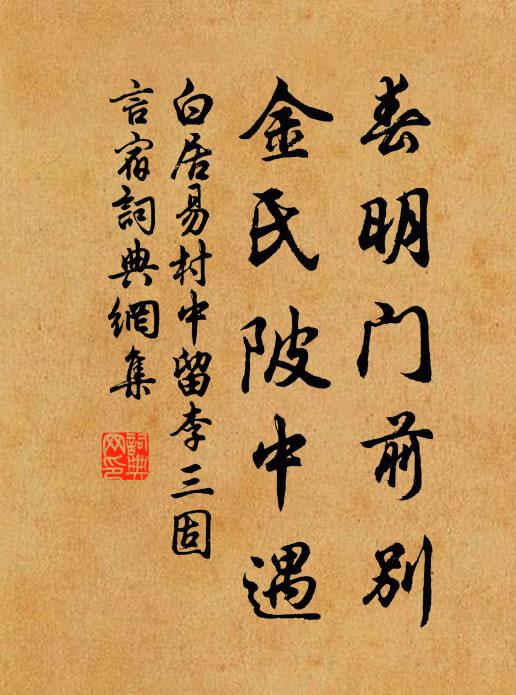 春明门前别
金氏陂中遇
白居易村中留李三固
言宿词典網集
詞典网印